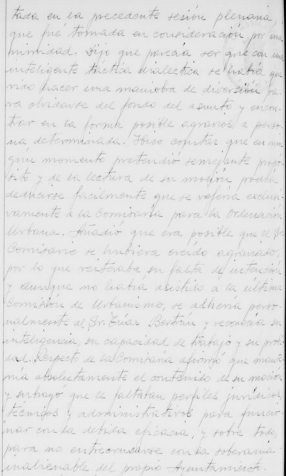 tada en la precedente sesión plenaria,
que fué tomada en consideración por una
nimidad. Dijo que parecía ser que con una
inteligente táctica dialectica se había que
rido hacer una maniobra de diversión pa
ra olvidarse del fondo del asunto y encon
trar en la forma posible agravio a perso
na determinada. Hizo constar que en nin
gun momento pretendió semejante propó
sito y de la lectura de su moción podía
deducirse facilmente que se refería exclusi
vamente a la Comisaría para la Ordenación
Urbana. Añadió que era posible que el Sr.
Comisario se hubiera creido agraviado,
por lo que reiteraba su falta de intención
y aunque no había asistido a la última
Comisión de Urbanismo, se adhería perso
nalmente al Sr. Beltrán y reconocía su
inteligencia, su capacidad de trabajo y su
Respecto de la Comisaría afirmó que mante
nía absolutamente el contenido de su moción
y subrayó que le faltaban perfiles jurídicos,
técnicos y administrativos para funcio
nar con la debida eficacia, y sobre todo,
para no entrecruzarse con la soberanía
inalienable del propio Ayuntamiento.